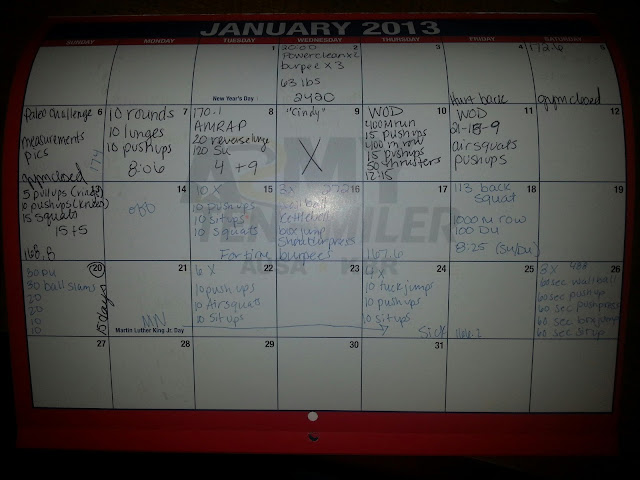 JANUARY 2013
SUNDAY MONDAY TUESDAY WEDNESDAY THURSDAY FRIDAY SATURDAY
1
New Year's Day
2
20:00
Powerclean x2
burpee x 3
63 lbs
2420
3
4
Hurt back
5
172.6
gym closed
6
Paleo Challenge
measurements
pics
174
gym closed
7
10 rounds
10 lunges
10 pushups
8:06
8
170.1
AMRAP
20 reverse lunge
120 Su
4 + 9
9
"Cindy"
X
10
WOD
400M run
15 pushups
400 m row
15 pushups
50 thrusters
12:15
11
WOD
21-18-9
air squats
pushups
12
13
5 pullups (ring)
10 pushups (knees)
15 squats
15 + 5
168.8
14
off
15
10 X
10 pushups
10 situps
10 squats
For time
16
3x 272
wall ball
Kettlebell
box jump
burpees
17
167.6
18
113 back
squat
1000 m row
100 DU
8:25 (SU/DU)
19
ARMY
TEN-MILER
AUSA
20
50 DU
50 ball slams
20
20
10
10
15 days
21
MW
Martin Luther King Jr. Day
22
6 X
10 push ups
10 Airsquats
10 Situps
23
24
6 X
10 tuck jumps
10 pushups
10 situps
25
Sick
26
3 X
60 sec wall ball
60 sec pushup
60 sec push press
60 sec box jump
60 sec situp
27
28
29
30
31